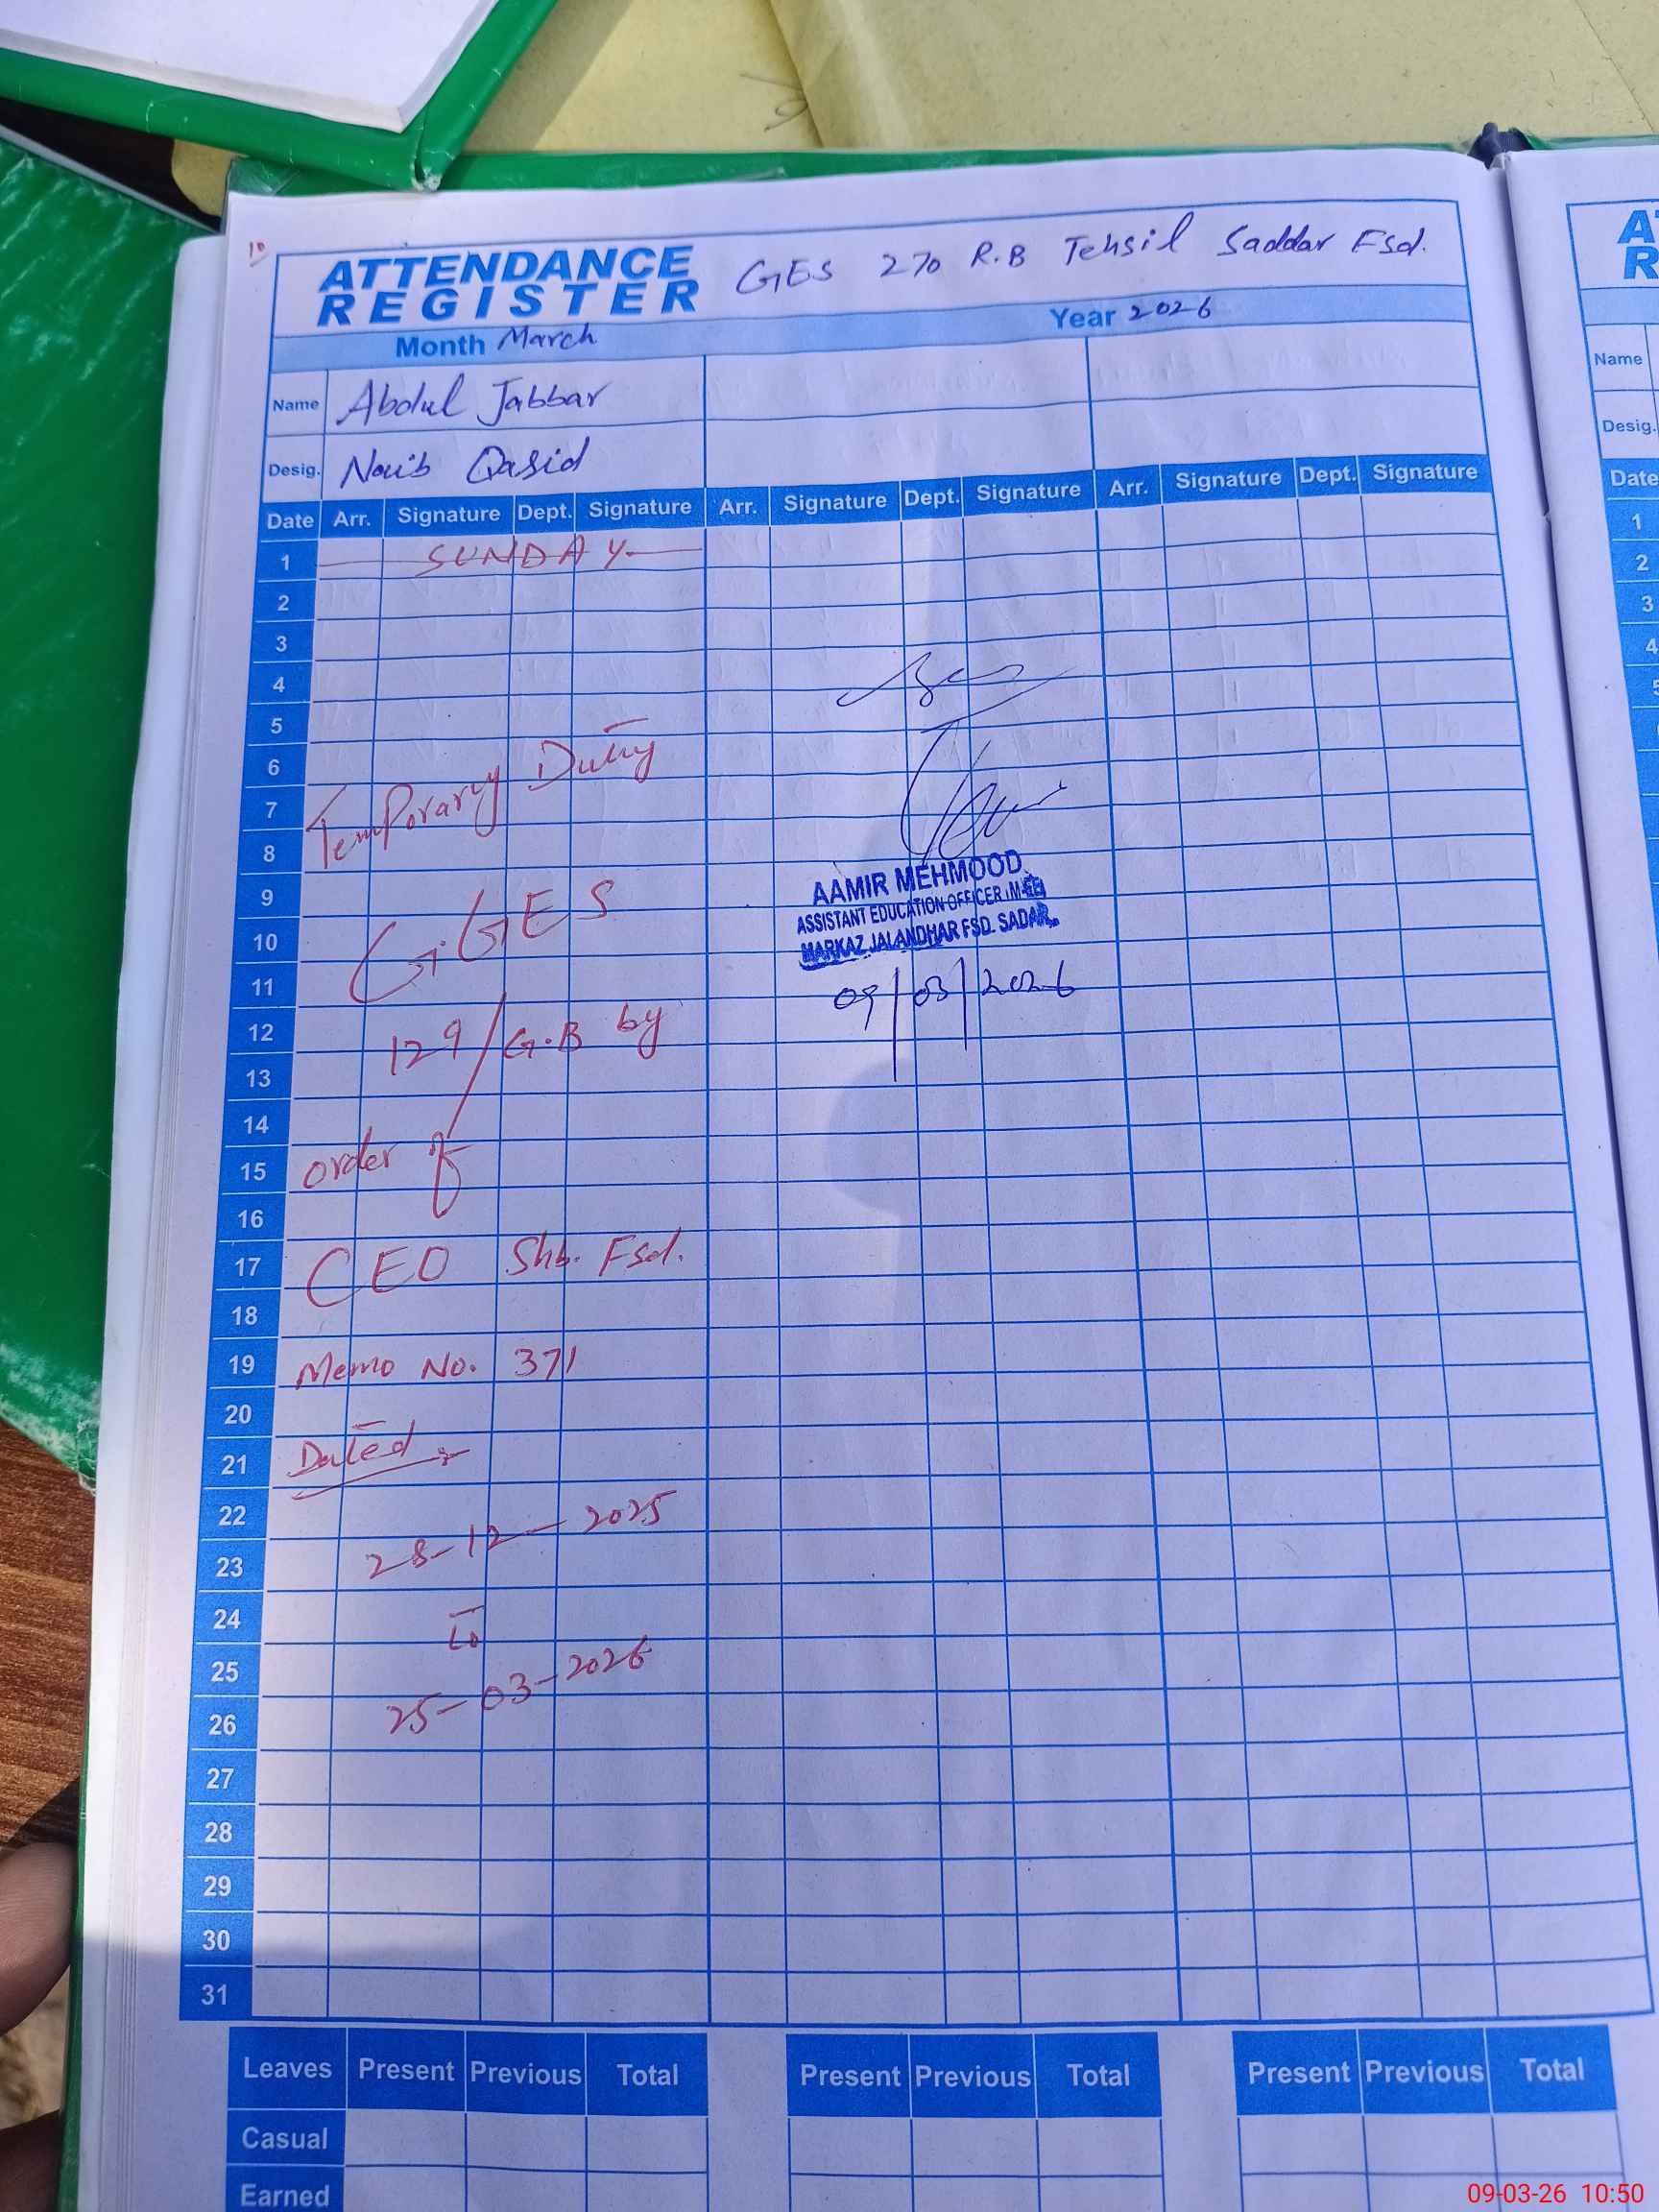 10
ATTENDANCE REGISTER GES 270 R.B Tehsil Saddar Fsd.
Month March Year 2026
Name Abdul Jabbar
Desig. Naib Qasid
Date Arr. Signature Dept. Signature Arr. Signature Dept. Signature Arr. Signature Dept. Signature
1 SUNDAY
2
3
4
5
6
Temporary Duty
7
8
9
G.GES
10
11
12
129/G.B by
13
14
15 order of
16
17 CEO Shb. Fsd.
18
19 Memo No. 371
20
21 Dated
22
28-12-2025
23
24 to
25
25-03-2026
26
27
28
29
30
31
AAMIR MEHMOOD
ASSISTANT EDUCATION OFFICER (M-EE)
MARKAZ JALANDHAR FSD. SADAR
09/03/2026
Leaves Present Previous Total Present Previous Total Present Previous Total
Casual
Earned
A
R
Name
Desig.
Date
1
2
3
4
09-03-26 10:50